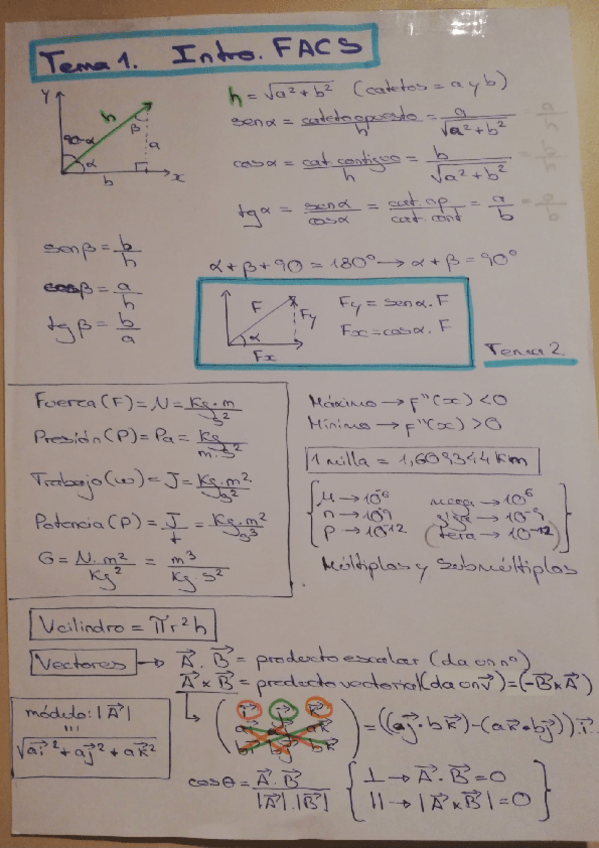 Tema 1. Intro. FACS
y
h
90-α
β
a
α
b
x
h = √a²+b² (catetos = a y b)
senα = cateto opuesto/h = a/√a²+b²
cosα = cat. contiguo/h = b/√a²+b²
tgα = senα/cosα = cat. op/cat. cont = a/b
senβ = b/h
cosβ = a/h
tgβ = b/a
α+β+90 = 180° → α+β = 90°
F
Fy
α
Fx
Fy = senα. F
Fx = cosα. F
Tema 2.
Fuerza (F) = N = Kg.m/s²
Presión (P) = Pa = Kg/m.s²
Trabajo (w) = J = Kg.m²/s²
Potencia (P) = J/t = Kg.m²/s³
G = N.m²/Kg² = m³/Kg.s²
Máximo → f''(x) < 0
Mínimo → f''(x) > 0
1 milla = 1,609344 km
μ → 10⁻⁶ mega → 10⁶
n → 10⁻⁹ giga → 10⁻⁹
p → 10⁻¹² (tera → 10⁻¹²)
Múltiplos y submúltiplos
Vcilindro = πr²h
Vectores → A⃗ . B⃗ = producto escalar (da un nº)
A⃗ x B⃗ = producto vectorial (da un v⃗) = (-B⃗ x A⃗)
módulo: |A⃗|
=
√ai⃗²+aj⃗²+ak⃗²
i⃗ j⃗ k⃗
ai⃗ aj⃗ ak⃗
bi⃗ bj⃗ bk⃗
= ((aj⃗ . bk⃗) - (ak⃗ . bj⃗)) . i⃗...
cosθ = A⃗ . B⃗/|A⃗| . |B⃗|
⊥ → A⃗ . B⃗ = 0
|| → |A⃗ x B⃗| = 0